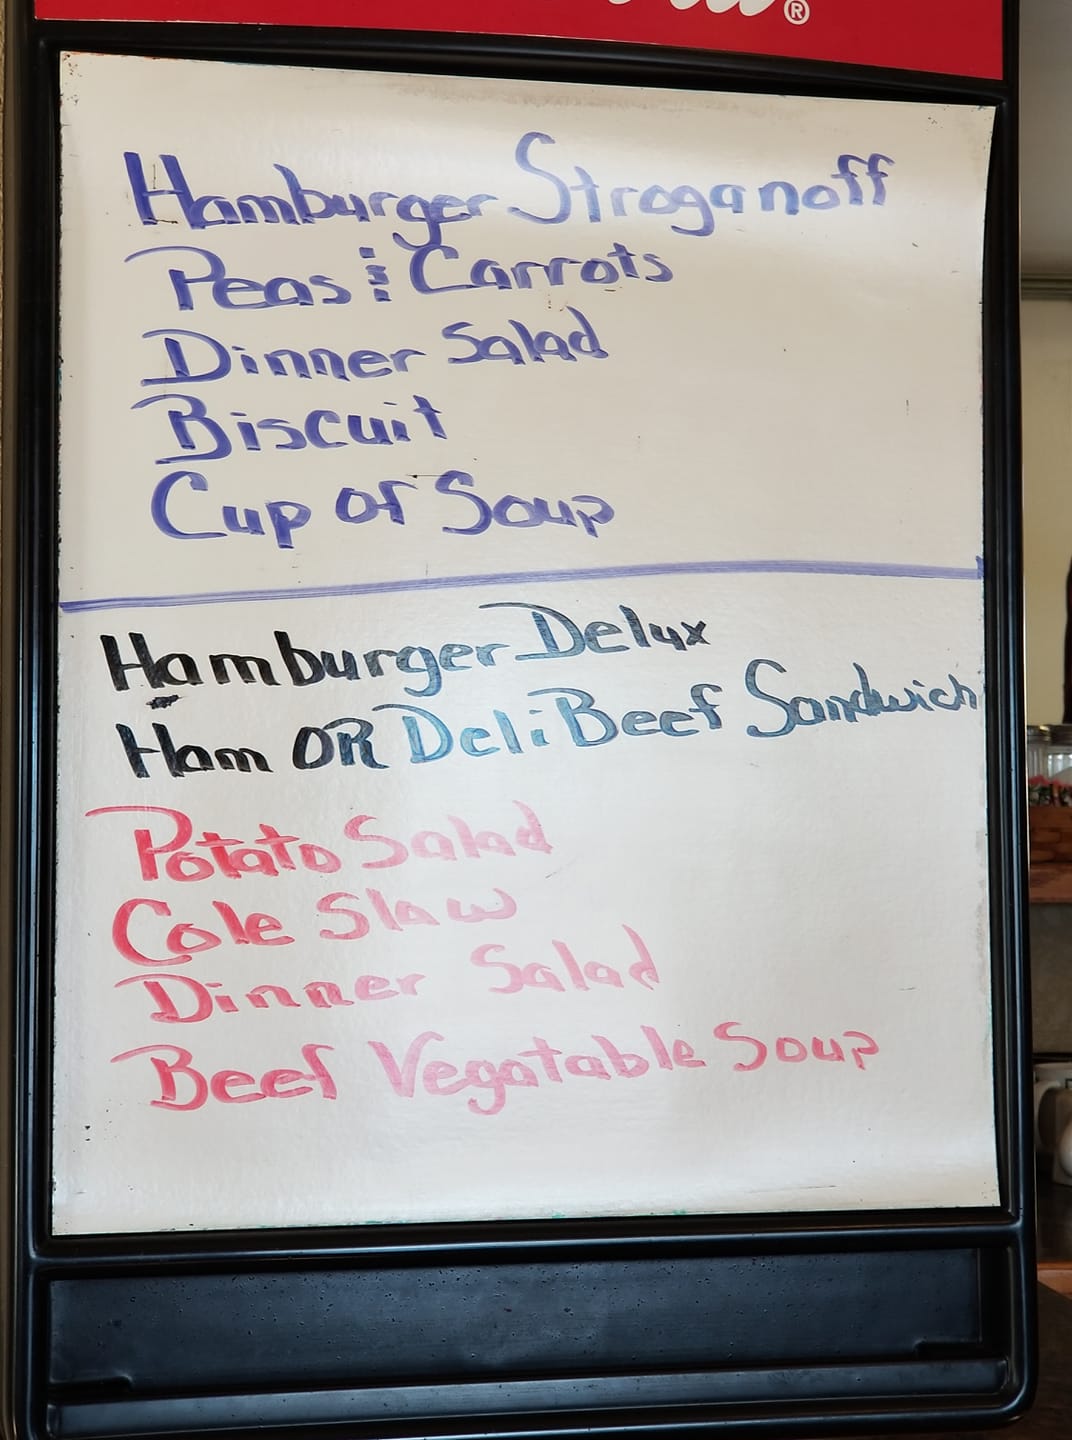 ®
Hamburger Stroganoff
Peas & Carrots
Dinner Salad
Biscuit
Cup of Soup
Hamburger Delux
Ham OR Deli Beef Sandwich
Potato Salad
Cole Slaw
Dinner Salad
Beef Vegatable Soup